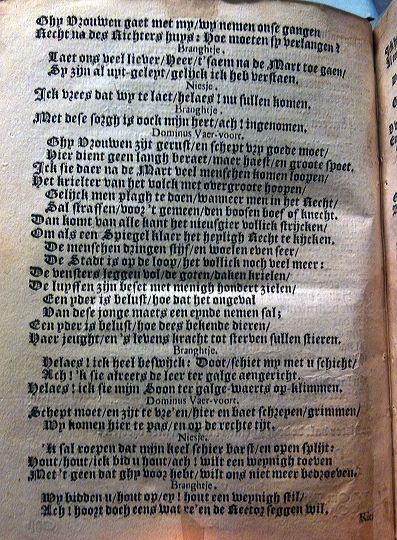 Ghy Vrouwen gaet met my/wy nemen onse gangen
Recht na des Richters huys: Hoe moeten sy verlangen?
Branghtje.
Laet ons veel liever/Heer/t'saem na de Mart toe gaen/
Sy zijn al uyt-geleyt/gelijck ick heb verstaen.
Niesje.
Ick vrees dat wy te laet/helaes! nu sullen komen.
Branghtje.
Met dese sorgh is oock mijn hert/ach! ingenomen.
Dominus Vaer-voort.
Ghy Vrouwen zijt gerust/en schept vry goede moet/
Hier dient geen langh beraet/maer haest/en groote spoet.
Ick sie daer na de Mart veel menschen komen loopen/
Het krielter van het volck met overgroote hoopen/
Gelijck men plagh te doen/wanneer men in het Recht/
Sal straffen/voor 't gemeen/den boosen boef of knecht.
Dan komt van alle kant het nieusgier vollick strijcken/
Om als een Spiegel klaer het heyligh Recht te kijcken.
De menschen dringen stijf/en woelen even seer/
De Stadt is op de loop/het vollick noch veel meer:
De vensters leggen vol/de goten/daken krielen/
De luyffen zijn beset met menigh hondert zielen/
Een yder is belust/hoe dat het ongeval
Van dese jonge maets een eynde nemen sal;
Een yder is belust/hoe dees bekende dieren/
Haer jeught/en 's levens kracht tot sterven sullen stieren.
Branghtje.
Helaes! ick heel beswijck: Doot/schiet my met u schicht/
Ach! 'k sie alreets de leer ter galge aengericht.
Helaes! ick sie mijn Soon ter galge-waerts op-klimmen.
Dominus Vaer-voort.
Schept moet/en zijt te vre'en/hier en baet schreyen/grimmen/
Wy komen hier te pas/en op de rechte tijt.
Niesje.
'k sal roepen dat mijn keel schier barst/en open splijt:
Hout/hout/ick bid u hout/ach! wilt een weynigh toeven
Met 't geen dat ghy voor hebt/wilt ons niet meer bedroeven.
Branghtje.
Wy bidden u/hout op/ey! hout een weynigh stil/
Ach! hoort doch eens wat re'en de Rector seggen wil.